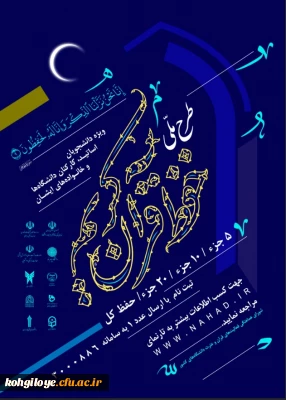 إِنَّا نَحْنُ نَزَّلْنَا الذِّكْرَ وَإِنَّا لَهُ لَحَافِظُونَ
طرح ملی
حفظ قرآن کریم
ویژه دانشجویان
اساتید، کارکنان دانشگاه‌ها
و خانواده‌های ایشان
۵ جزء / ۱۰ جزء / ۲۰ جزء / حفظ کل
ثبت نام با ارسال عدد ۱ به سامانه ۳۰۰۰۸۸۶
جهت کسب اطلاعات بیشتر به تارنمای
WWW.NAHAD.IR
مراجعه نمایید.
kohgiloye.cfu.ac.ir